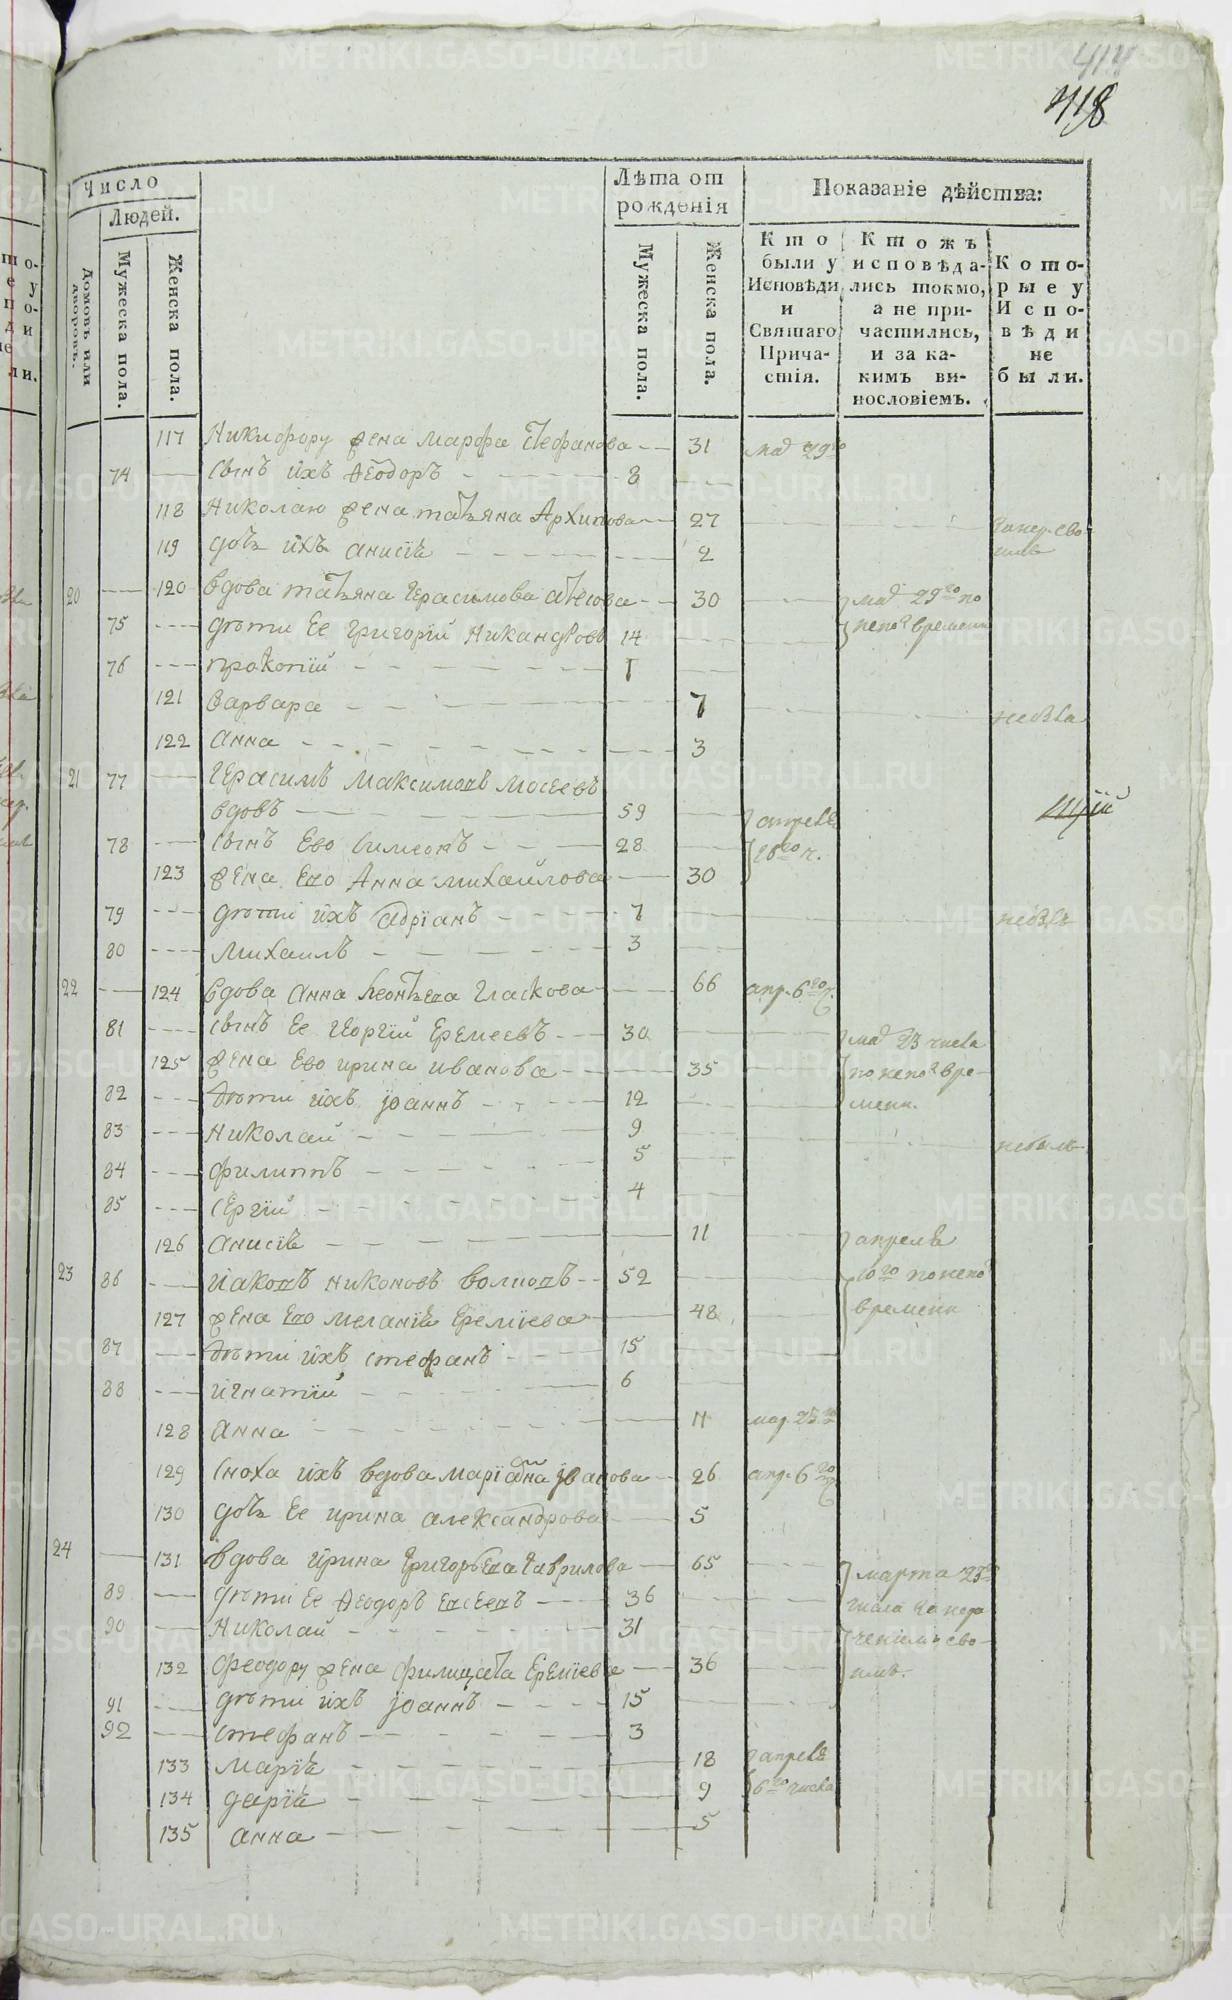 414
418
Число
Людей.
Домовъ или дворовъ.
Мужеска пола.
Женска пола.
Лѣта от рожденія
Мужеска пола.
Женска пола.
Показаніе дѣйства:
Кто были у Исповѣди и Святаго Причастія.
Ктожъ исповѣдались токмо, а не причастились, и за какимъ винословіемъ.
Которые у Исповѣди не были.
117 Никифору жена Марфа Стефанова 31 маѣ 29го
74 сынъ ихъ Ѳеодоръ 8
118 Николаю жена Татьяна Архипова 27
119 дочь ихъ Анисія 2
20 120 вдова Татьяна Герасимова 30 маѣ 29го по
75 дѣти ее Григорій Никандровъ 14 времени
76 Прокопій 1
121 Варвара 7
122 Анна 3
21 77 Герасимъ Максимовъ Мосеевъ
вдовъ 59 апреля
78 сынъ ево Симеонъ 28 го ч.
123 жена ево Анна Михайлова 30
79 дѣти ихъ Адріанъ 7
80 Михаилъ 3
22 124 вдова Анна Леонтьева Гласкова 66 апр. 6го ч.
81 сынъ ее Георгій Еремеевъ 30 маѣ 23 числа
125 жена ево Ирина Иванова 35 по непо вре-
82 дѣти ихъ Іоаннъ 12 мени.
83 Николай 9
84 Филиппъ 5
85 Сергій 4
126 Анисія 11 апреля
23 86 Іаковъ Никоновъ Волковъ 52 10го по непо
127 жена ево Меланія Еремѣева 48 времени
87 дѣти ихъ Стефанъ 15
88 Игнатій 6
128 Анна 11 мар. 25го
129 сноха ихъ вдова Маріанна Іванова 26 апр. 6го ч
130 дочь ее Ирина Александрова 5
24 131 вдова Ирина Григорьева Гаврилова 65
89 дѣти ее Ѳеодоръ Евсеевъ 36 марта 25го
90 Николай 31 числа
132 Феодору жена Филицата Еремѣева 36
91 дѣти ихъ Іоаннъ 15
92 Стефанъ 3
133 Марія 18 апреля
134 Дарія 9 6го числа
135 Анна 5
METRIKI.GASO-URAL.RU